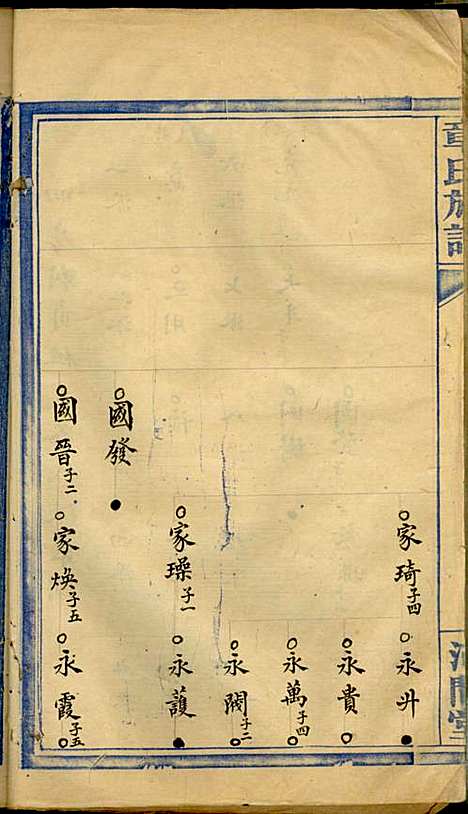 章氏族譜
家琦子四 永升
永貴
永萬子四
永閥子二
家璪子一 永護
國發
國晉子二 家煥子五 永霞子五